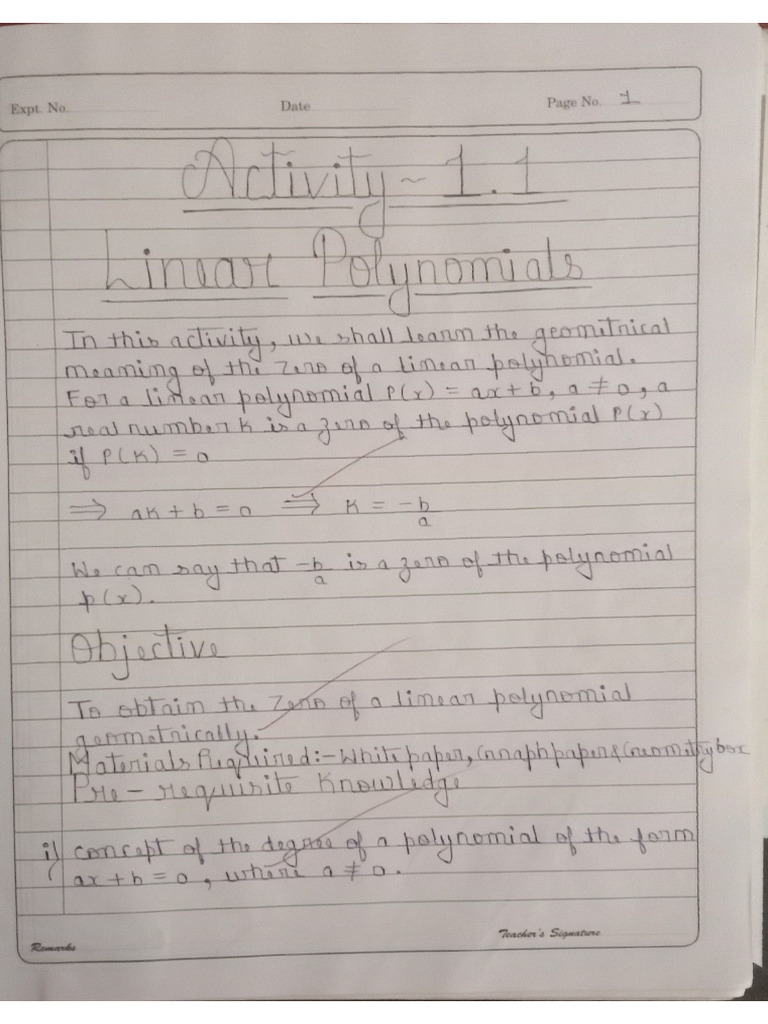 Expt. No. Date Page No. 1
Activity - 1.1
Linear Polynomials
In this activity, we shall learn the geometrical
meaning of the zero of a linear polynomial.
For a linear polynomial P(x) = ax + b, a ≠ 0, a
real number K is a zero of the polynomial P(x)
if P(K) = 0
⇒ aK + b = 0 ⇒ K = -b/a
We can say that -b/a is a zero of the polynomial
p(x).
Objective
To obtain the zero of a linear polynomial
geometrically.
Materials Required:- White paper, Graph paper & Geometry box
Pre - requisite Knowledge
i) concept of the degree of a polynomial of the form
ax + b = 0, where a ≠ 0.
Teacher's Signature
Remarks